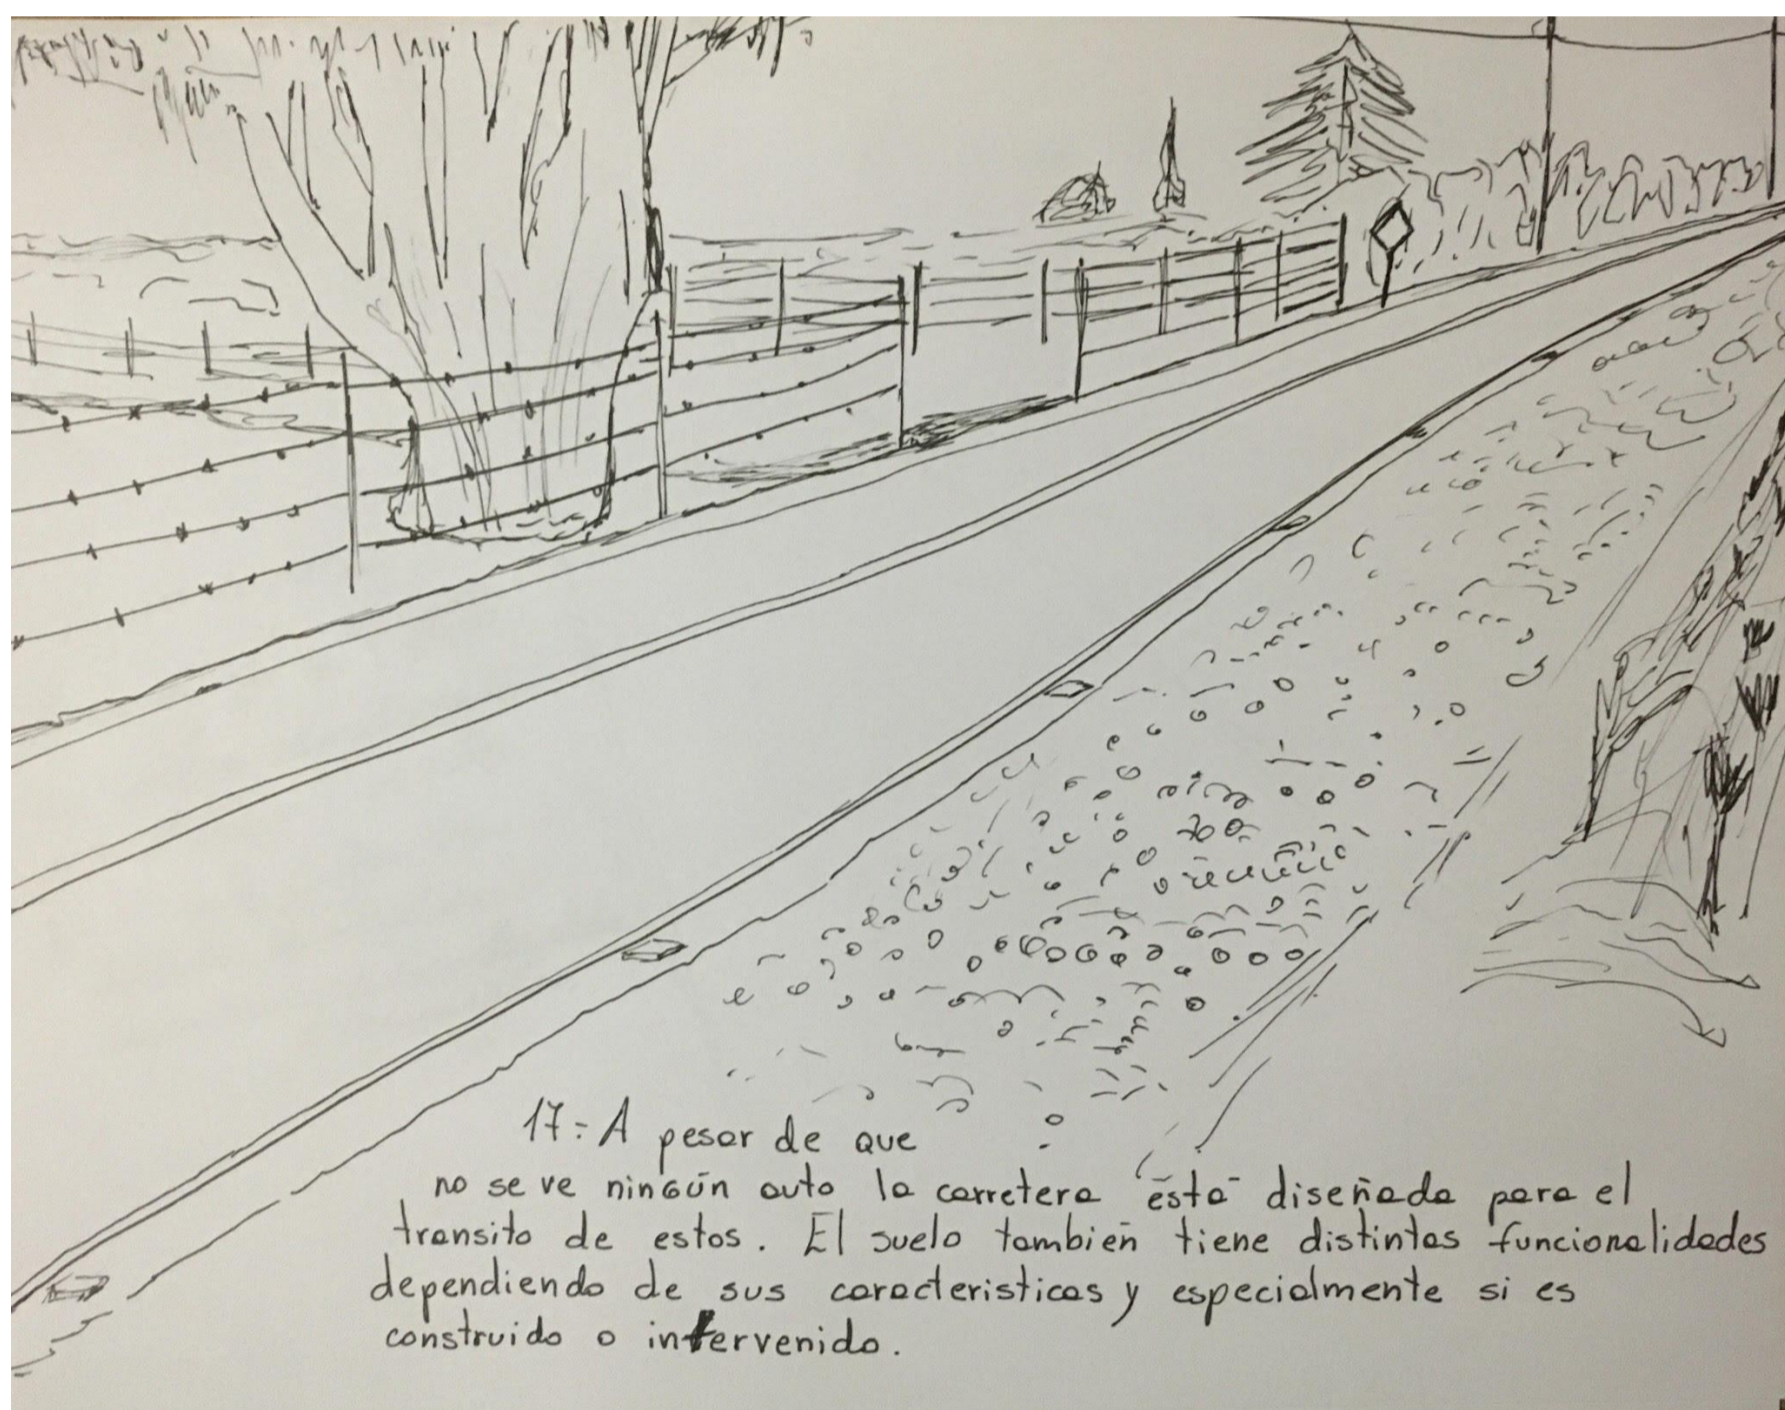 17= A pesar de que
no se ve ningún auto la carretera está diseñada para el
transito de estos. El suelo también tiene distintas funcionalidades
dependiendo de sus caracteristicas y especialmente si es
construido o intervenido.